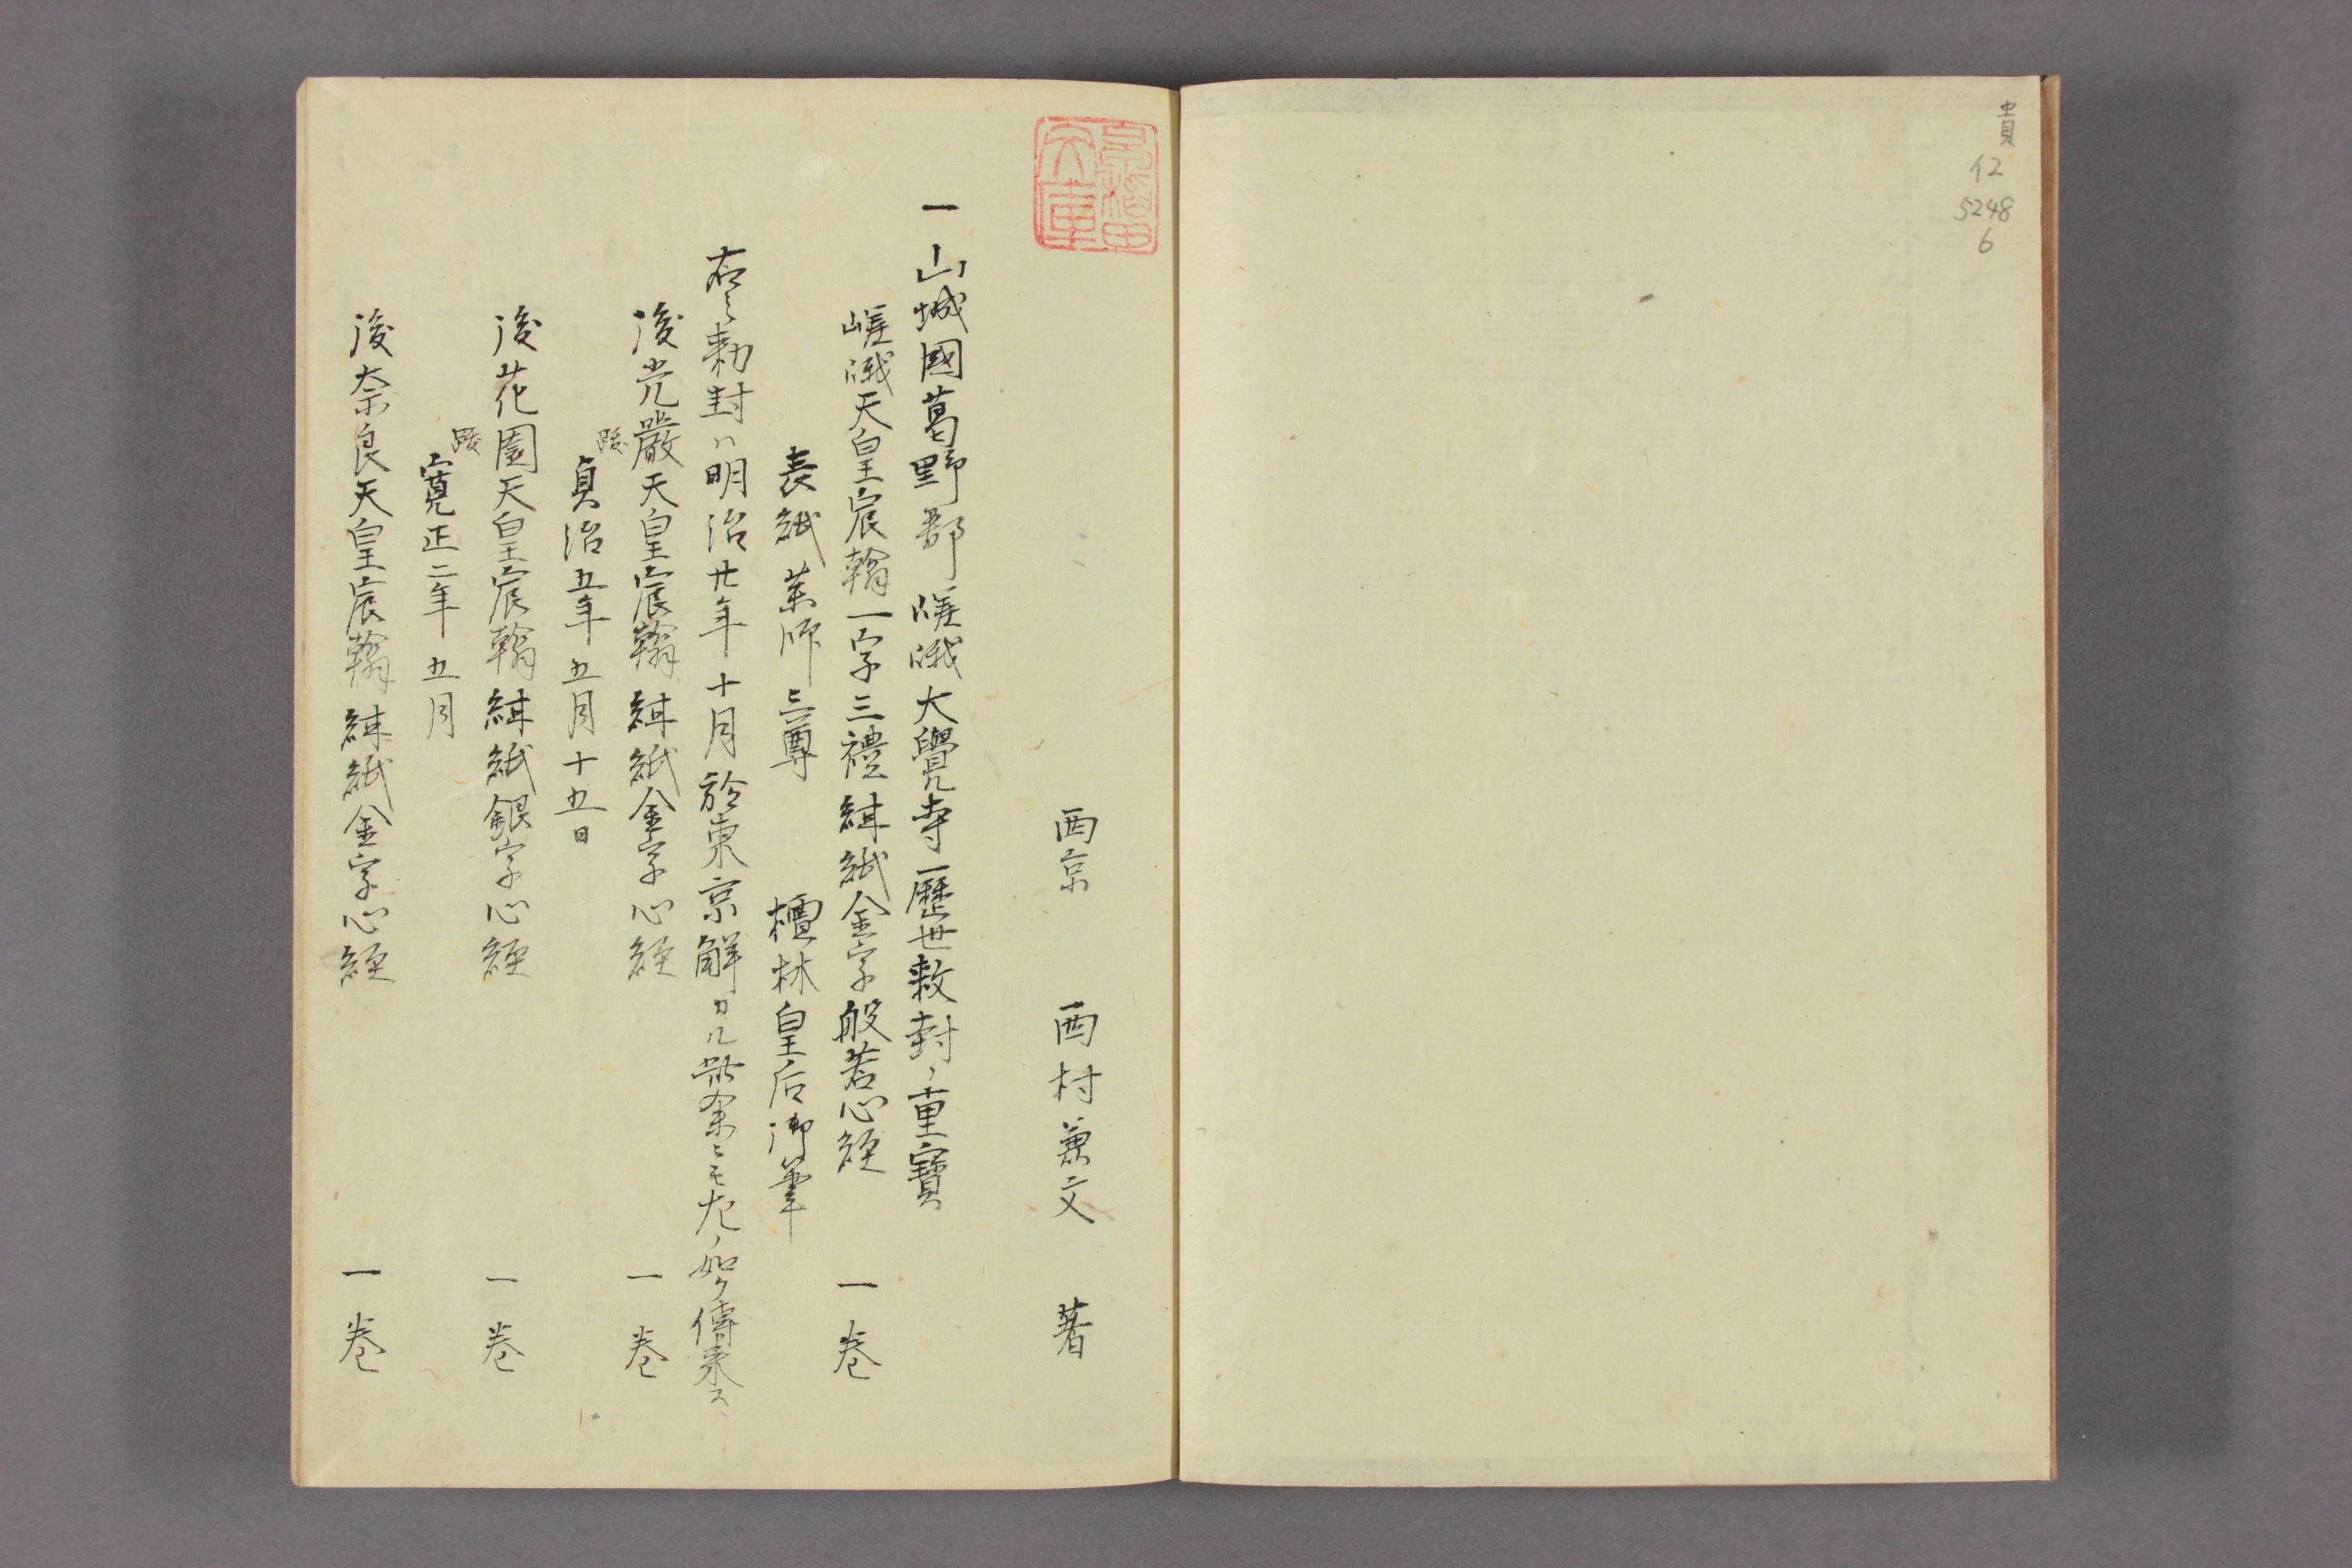 貴
イ2
5248
6
西京 西村兼文 著
一山城國葛野郡嵯峨大覺寺歷世敕封ノ重寶
嵯峨天皇宸翰一字三禮紺紙金字般若心經 一巻
表紙薬師三尊 檀林皇后御筆
右之勅封ハ明治廿年十月於東京解カル此余ニモ左ノ如ク傳来ス
後光嚴天皇宸翰紺紙金字心經 一巻
跋 貞治五年五月十五日
後花園天皇宸翰紺紙銀字心經 一巻
跋 寛正二年五月
後奈良天皇宸翰紺紙金字心經 一巻